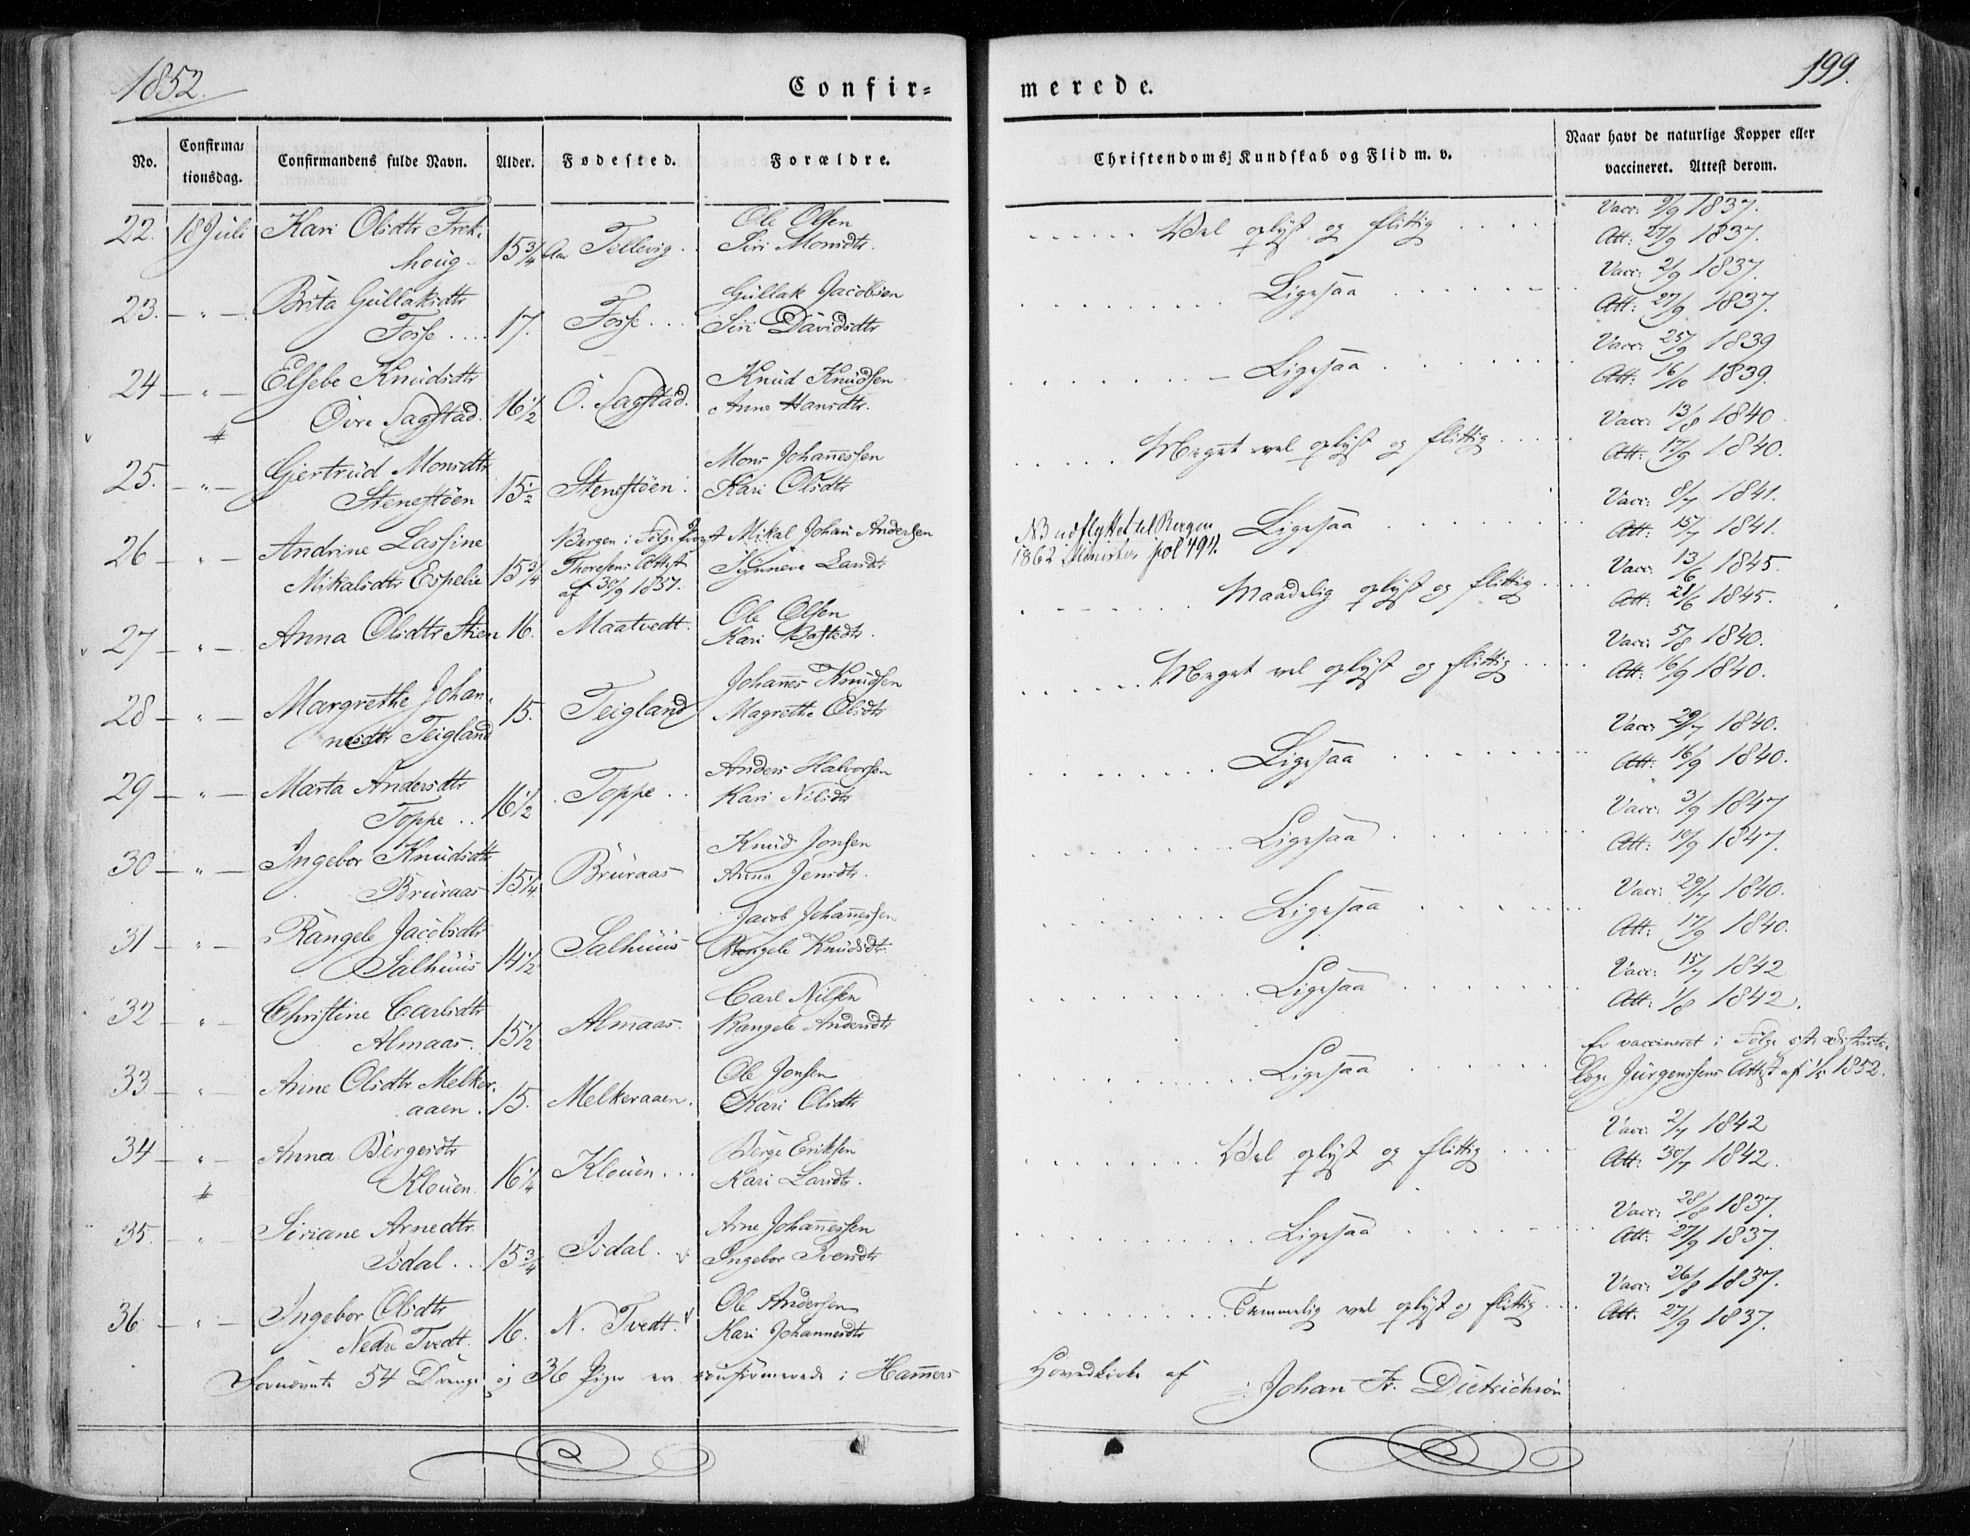 1852.
Confir=
merede.
199.
No.
Confirma-
tionsdag.
Confirmandens fulde Navn.
Alder.
Fødested.
Forældre.
Christendoms Kundskab og Flid m. v.
Naar havt de naturlige Kopper eller
vaccineret. Attest derom.
22. 18 Juli Kari Olsdtr 15 3/4 Aar Tellevig Ole Olsen
houg. Siri Monsdtr.
Vel oplyst og flittig Vacc: 2/9 1837.
Att: 27/9 1837.
23. — " — Brita Gullaksdtr Gullak Jacobsen
Fosse 17. Fosse Siri Davidsdtr
Ligesaa Vacc: 2/9 1837.
Att: 27/9 1837.
24 — " — Elsebe Knudsdtr Knud Knudsen
Øvre Sagstad. 16 1/2 Ö. Sagstad. Anne Hansdtr.
Ligesaa Vacc: 25/9 1839
Att: 16/10 1839.
25. — " — Gjertrud Monsdtr Mons Johannessen
Stenestöen 15 1/2 Stenestöen Kari Olsdtr
Meget vel oplyst og flittig Vacc: 13/8 1840
Att: 17/9 1840.
26 — " — Andrine Lassine Bergen i Følge Provst Mikal Johan Andersen
Mikalsdtr Espelie 15 3/4 Thoresens Attest Synneve Larsdtr
af 30/9 1837.
NB udflyttet til Bergen
1862 Minister fol 494. Ligesaa Vacc: 8/7 1841.
Att: 15/7 1841.
27 — " — Anna Olsdtr Stien 16. Maatvedt. Ole Olsen
Kari
Maadelig oplyst og flittig Vacc: 13/6 1845.
Att: 21/6 1845.
28 — " — Margrethe Johan- Johannes Knudsen
nesdtr Teigland 15. Teigland Magrethe Olsdtr
Meget vel oplyst og flittig Vacc: 5/8 1840.
Att: 16/9 1840.
29 — " — Marta Andersdtr Anders Halvorsen
Toppe 16 1/2 Toppe Kari Nilsdtr
Ligesaa Vacc: 29/7 1840.
Att: 16/9 1840.
30 — " — Ingebor Knudsdtr Knud Jonsen
Bruraas 15 1/4 Bruraas Anna Jensdtr.
Ligesaa Vacc: 3/9 1847
Att: 10/9 1847.
31 — " — Rangele Jacobsdtr Jacob Johannessen
Salhuus 14 1/2 Salhuus Rangele Knudsdtr.
Ligesaa Vacc: 29/7 1840.
Att: 17/9 1840.
32 — " — Christine Carlsdtr Carl Nilsen
Almaas. 15 1/2 Almaas. Rangele Andersdtr
Ligesaa Vacc: 15/7 1842
Att: 1/8 1842.
33 — " — Anne Olsdtr Melker- Ole Jonsen
aaen. 15. Melkeraaen. Kari Olsdtr
Ligesaa Er vaccineret i Følge
Læge Jürgensens Attest af 1852.
34 — " — Anna Børgesdtr Børge Eriksen
Klouen. 16 1/4 Klouen Kari Larsdtr.
Vel oplyst og flittig Vacc: 2/7 1842
Att: 30/7 1842.
35. — " — Siriane Arnedtr Arne Johannessen
Isdal 15 3/4 Isdal. Ingebor Iversdtr
Ligesaa Vacc: 28/8 1837.
Att: 27/9 1837.
36 — " — Ingebor Olsdtr Ole Andersen
Nedre Tvedt. 16. N. Tvedt. Kari Johannesdtr
Temmelig vel oplyst og flittig Vacc: 26/8 1837.
Att. 27/9 1837.
Fornævnte 54 Drenge og 36 Piger ere confirmerede i Hammers Hovedkirke af
Johan Fr. Dietrichson